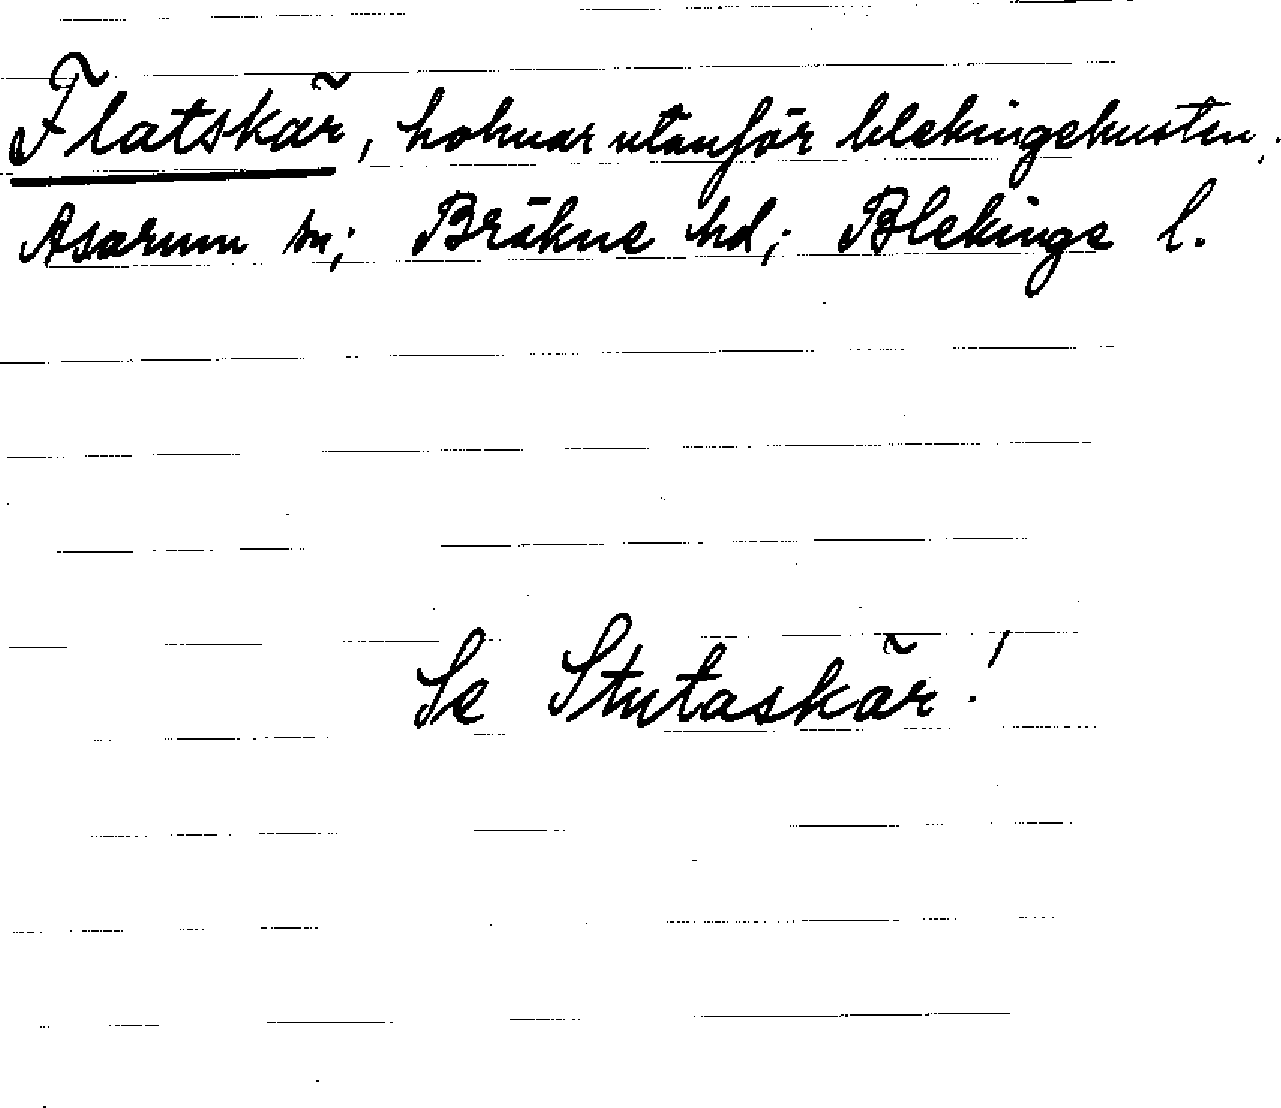 Flatskär, holmar utanför blekingekusten,
Asarum sn; Bräkne hd; Blekinge l.
Se Stutaskär!